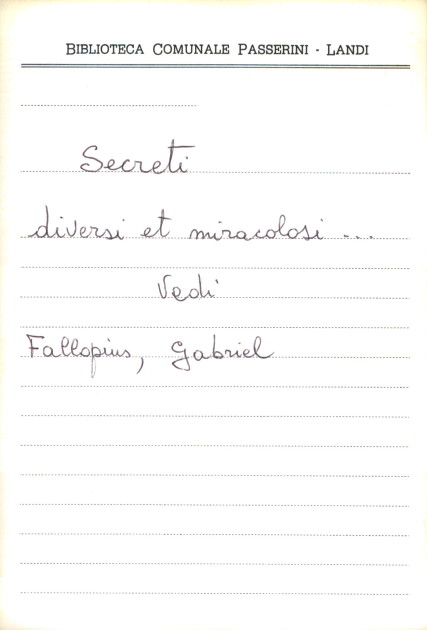 BIBLIOTECA COMUNALE PASSERINI · LANDI
Secreti
diversi et miracolosi ...
Vedi
Fallopius, Gabriel